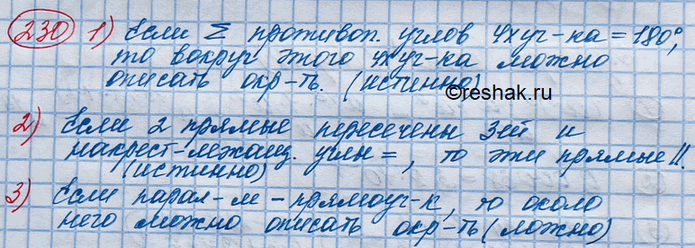 230 1) Если Σ противоп. углов 4хуг-ка = 180°,
то вокруг этого 4хуг-ка можно
описать окр-ть. (истинно)
©reshak.ru
2) Если 2 прямые пересечены 3ей и
накрест-лежащ. углы =, то эти прямые ||.
(истинно)
3) Если парал-м - прямоуг-к, то около
него можно описать окр-ть (ложно)